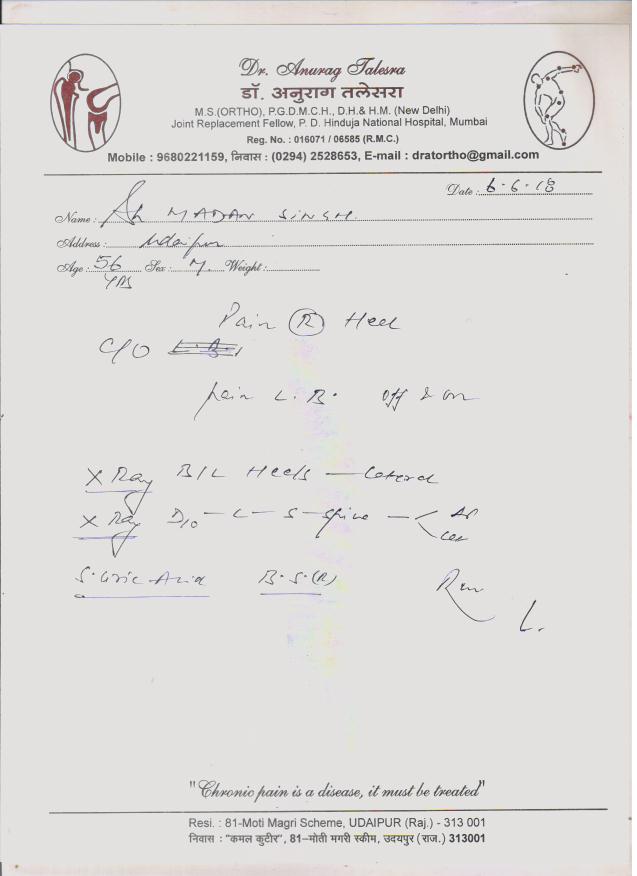 Dr. Anurag Talesra
डॉ. अनुराग तलेसरा
M.S.(ORTHO), P.G.D.M.C.H., D.H.& H.M. (New Delhi)
Joint Replacement Fellow, P. D. Hinduja National Hospital, Mumbai
Reg. No. : 016071 / 06585 (R.M.C.)
Mobile : 9680221159, निवास : (0294) 2528653, E-mail : dratortho@gmail.com
Date : 6.6.18
Name : Sh MADAN SINGH.
Address : Udaipur
Age : 56 yrs Sex : M. Weight :
Pain R Heel
C/O
pain L.B. off & on
X Ray B/L Heels — lateral
X Ray D10 - L - S - spine — AP
S. Uric Acid B.S.(R)
"Chronic pain is a disease, it must be treated"
Resi. : 81-Moti Magri Scheme, UDAIPUR (Raj.) - 313 001
निवास : "कमल कुटीर", 81–मोती मगरी स्कीम, उदयपुर (राज.) 313001